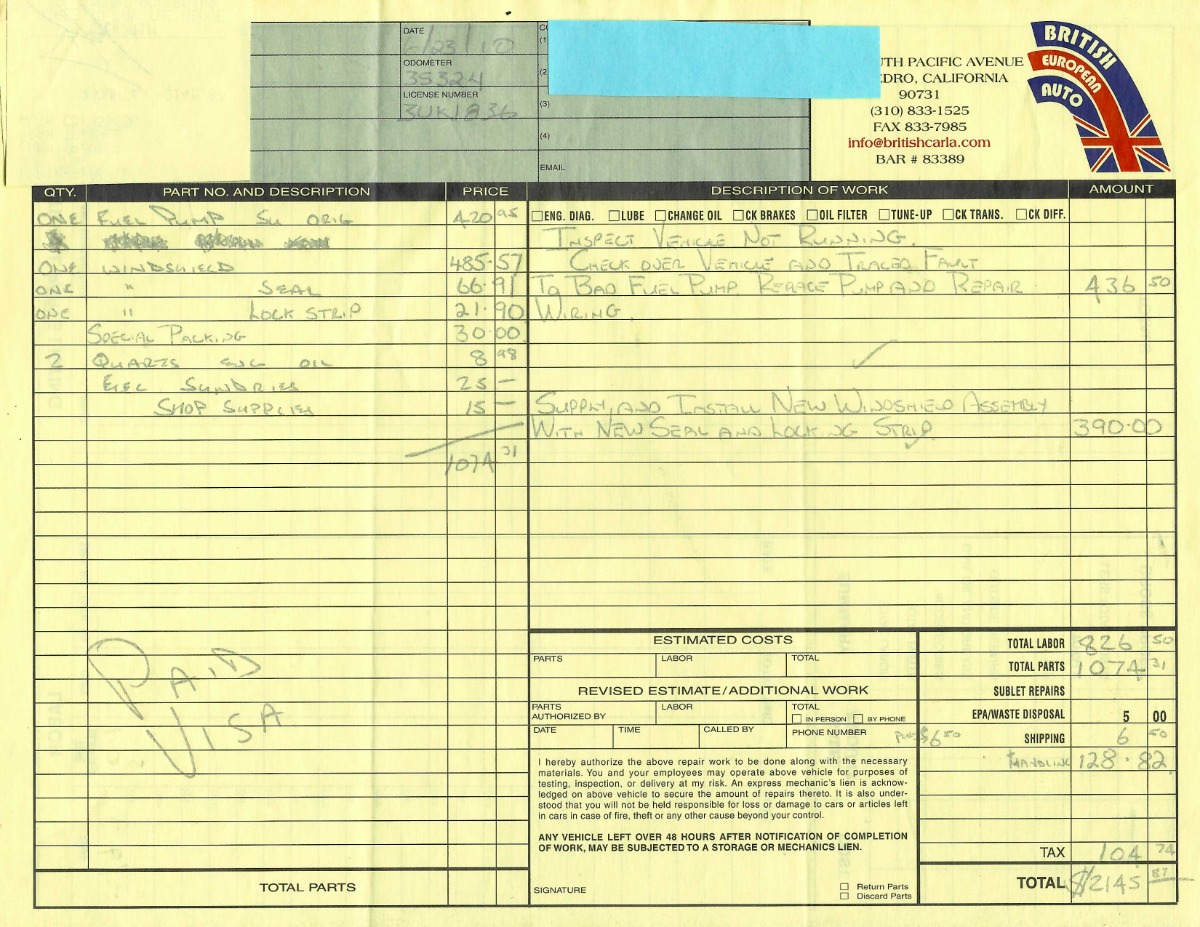 DATE
6/23/10
ODOMETER
35324
LICENSE NUMBER
3UK1836
(1)
(2
(3)
(4)
EMAIL
UTH PACIFIC AVENUE
EDRO, CALIFORNIA
90731
(310) 833-1525
FAX 833-7985
info@britishcarla.com
BAR # 83389
BRITISH
EUROPEAN
AUTO
QTY. PART NO. AND DESCRIPTION PRICE DESCRIPTION OF WORK AMOUNT
ONE FUEL PUMP SU ORIG 420 95
☐ENG. DIAG. ☐LUBE ☐CHANGE OIL ☐CK BRAKES ☐OIL FILTER ☐TUNE-UP ☐CK TRANS. ☐CK DIFF.
INSPECT VEHICLE NOT RUNNING.
ONE WINDSHIELD 485.57 CHECK OVER VEHICLE AND TRACED FAULT
ONE " SEAL 66.91 TO BAD FUEL PUMP REPLACE PUMP AND REPAIR 436 50
ONE " LOCK STRIP 21.90 WIRING.
SPECIAL PACKING 30.00
2 QUARTS ENG OIL 8 98
ELEC SUNDRIES 25 —
SHOP SUPPLIES 15 — SUPPLY AND INSTALL NEW WINDSHIELD ASSEMBLY
WITH NEW SEAL AND LOCKING STRIP 390.00
1074 31
PAID
VISA
ESTIMATED COSTS
PARTS LABOR TOTAL
REVISED ESTIMATE/ADDITIONAL WORK
PARTS LABOR TOTAL
AUTHORIZED BY ☐ IN PERSON ☐ BY PHONE
DATE TIME CALLED BY PHONE NUMBER
I hereby authorize the above repair work to be done along with the necessary
materials. You and your employees may operate above vehicle for purposes of
testing, inspection, or delivery at my risk. An express mechanic's lien is acknow-
ledged on above vehicle to secure the amount of repairs thereto. It is also under-
stood that you will not be held responsible for loss or damage to cars or articles left
in cars in case of fire, theft or any other cause beyond your control.
ANY VEHICLE LEFT OVER 48 HOURS AFTER NOTIFICATION OF COMPLETION
OF WORK, MAY BE SUBJECTED TO A STORAGE OR MECHANICS LIEN.
SIGNATURE
☐ Return Parts
☐ Discard Parts
TOTAL LABOR 826 50
TOTAL PARTS 1074 31
SUBLET REPAIRS
EPA/WASTE DISPOSAL 5 00
$6 50 SHIPPING 6 50
HANDLING 128.82
TAX 104 74
TOTAL $2145 87
TOTAL PARTS